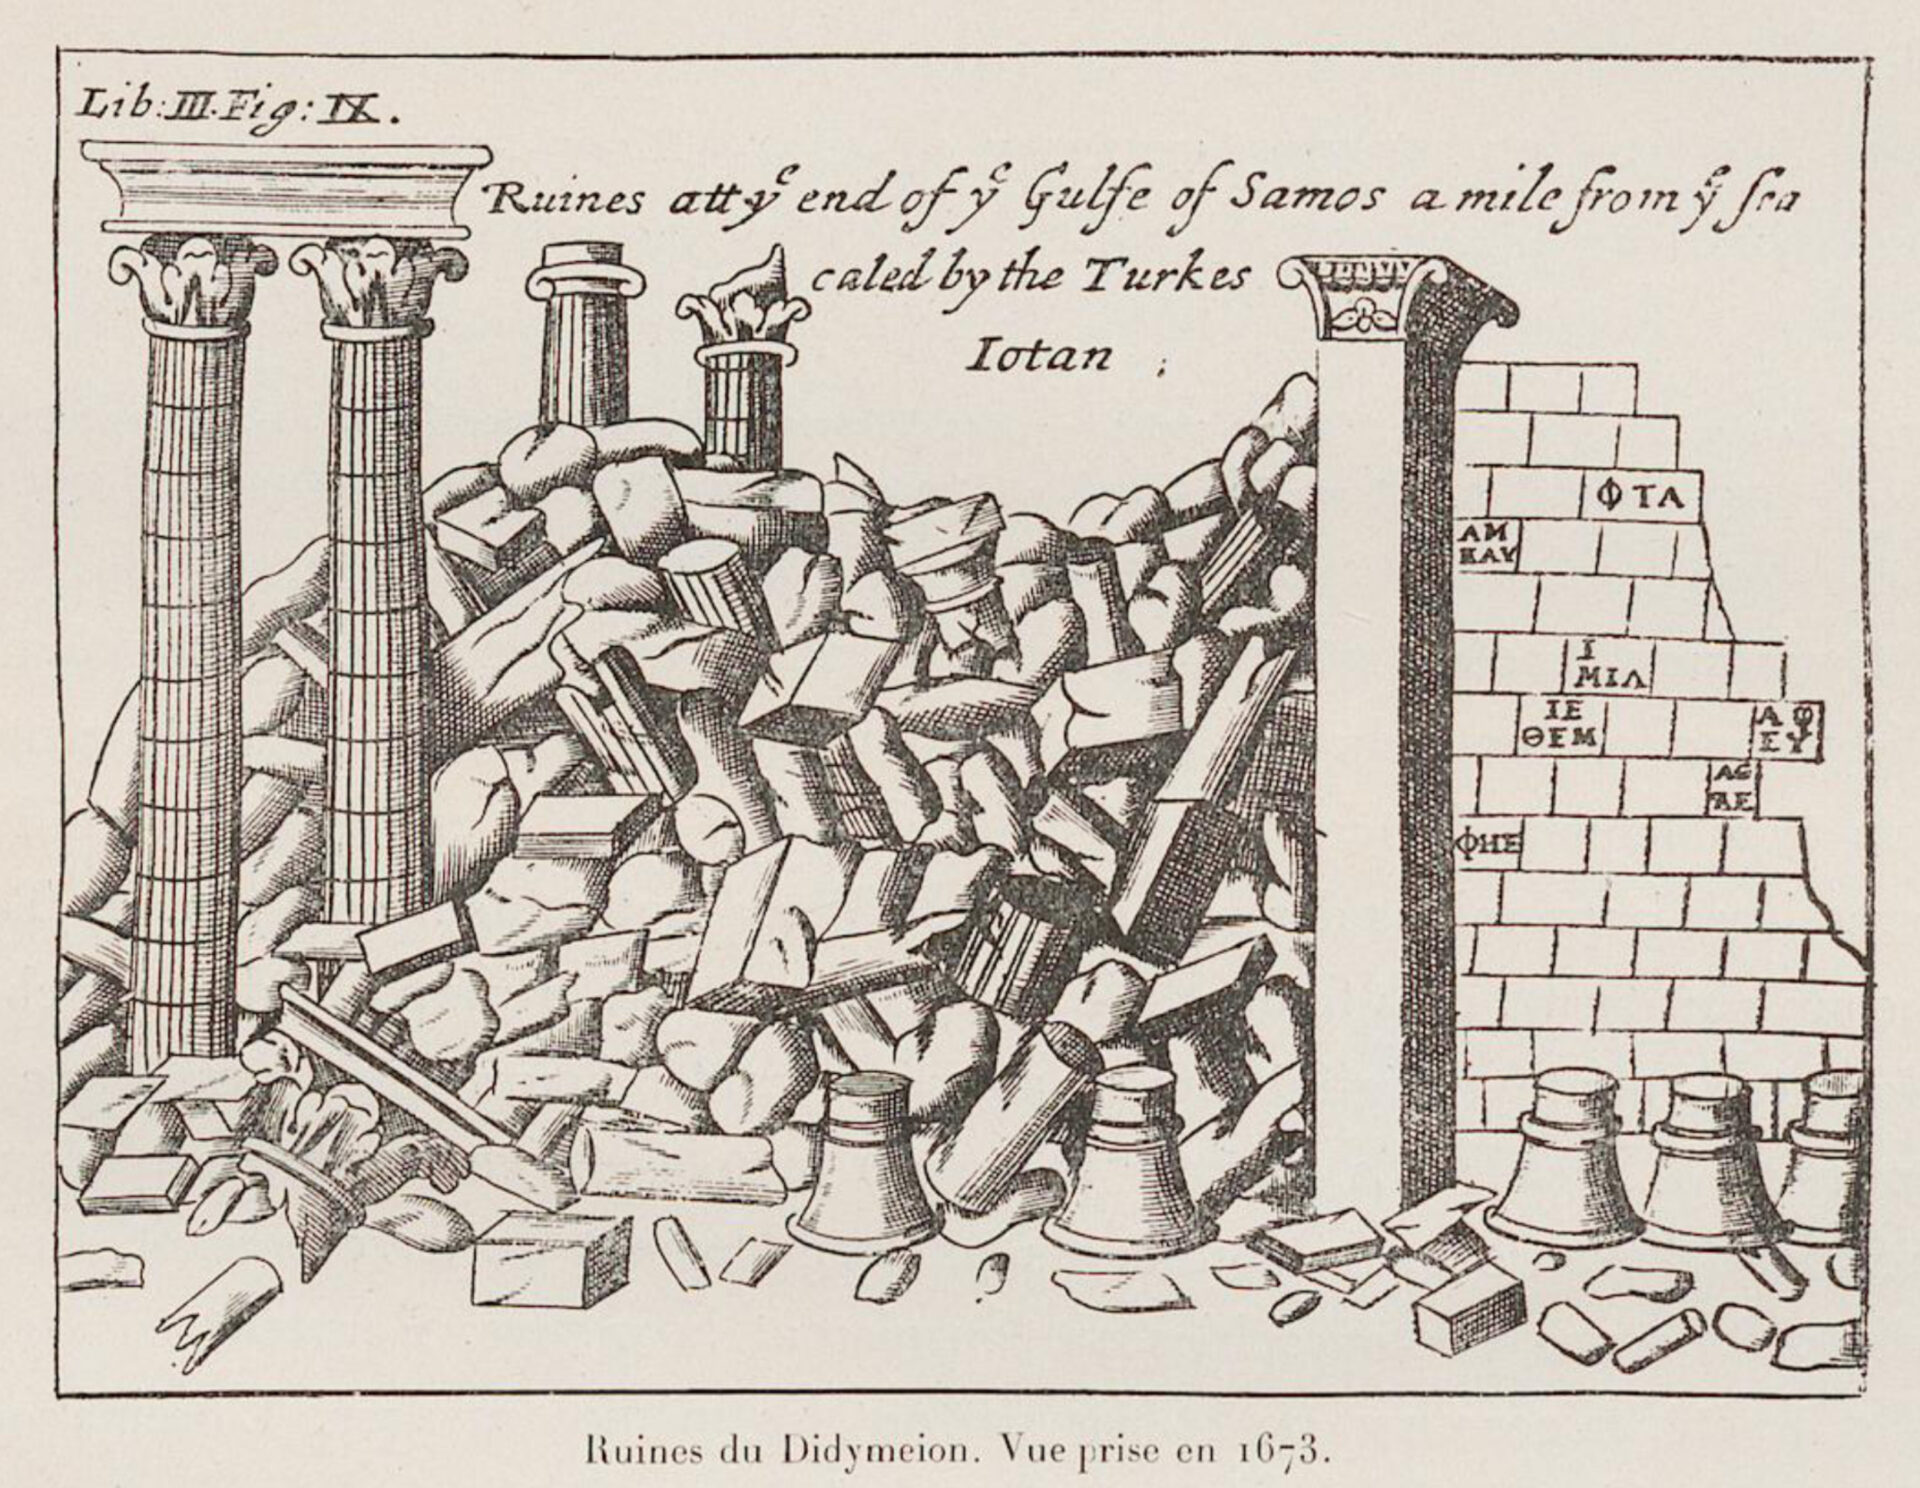 Lib: III. Fig: IX.
Ruines att yᵉ end of yᵉ Gulfe of Samos a mile from yᵉ sea
caled by the Turkes
Iotan ;
Φ ΤΑ
ΑΜ
ΚΑΥ
Ι
ΜΙΛ
ΙΕ
ΘΕΜ
Α Φ
ΕΥ
ΑΣ
ΑΕ
ΦΗΣ
Ruines du Didymeion. Vue prise en 1673.